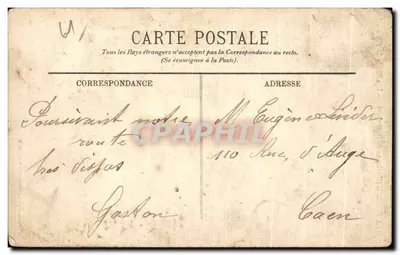 CARTE POSTALE
Tous les Pays étrangers n'acceptent pas la Correspondance au recto.
(Se renseigner à la Poste).
CORRESPONDANCE
ADRESSE
Poursuivant notre
route
Gaston
M. Eugène
110 Rue d'Auge
Caen
CPAPHIL